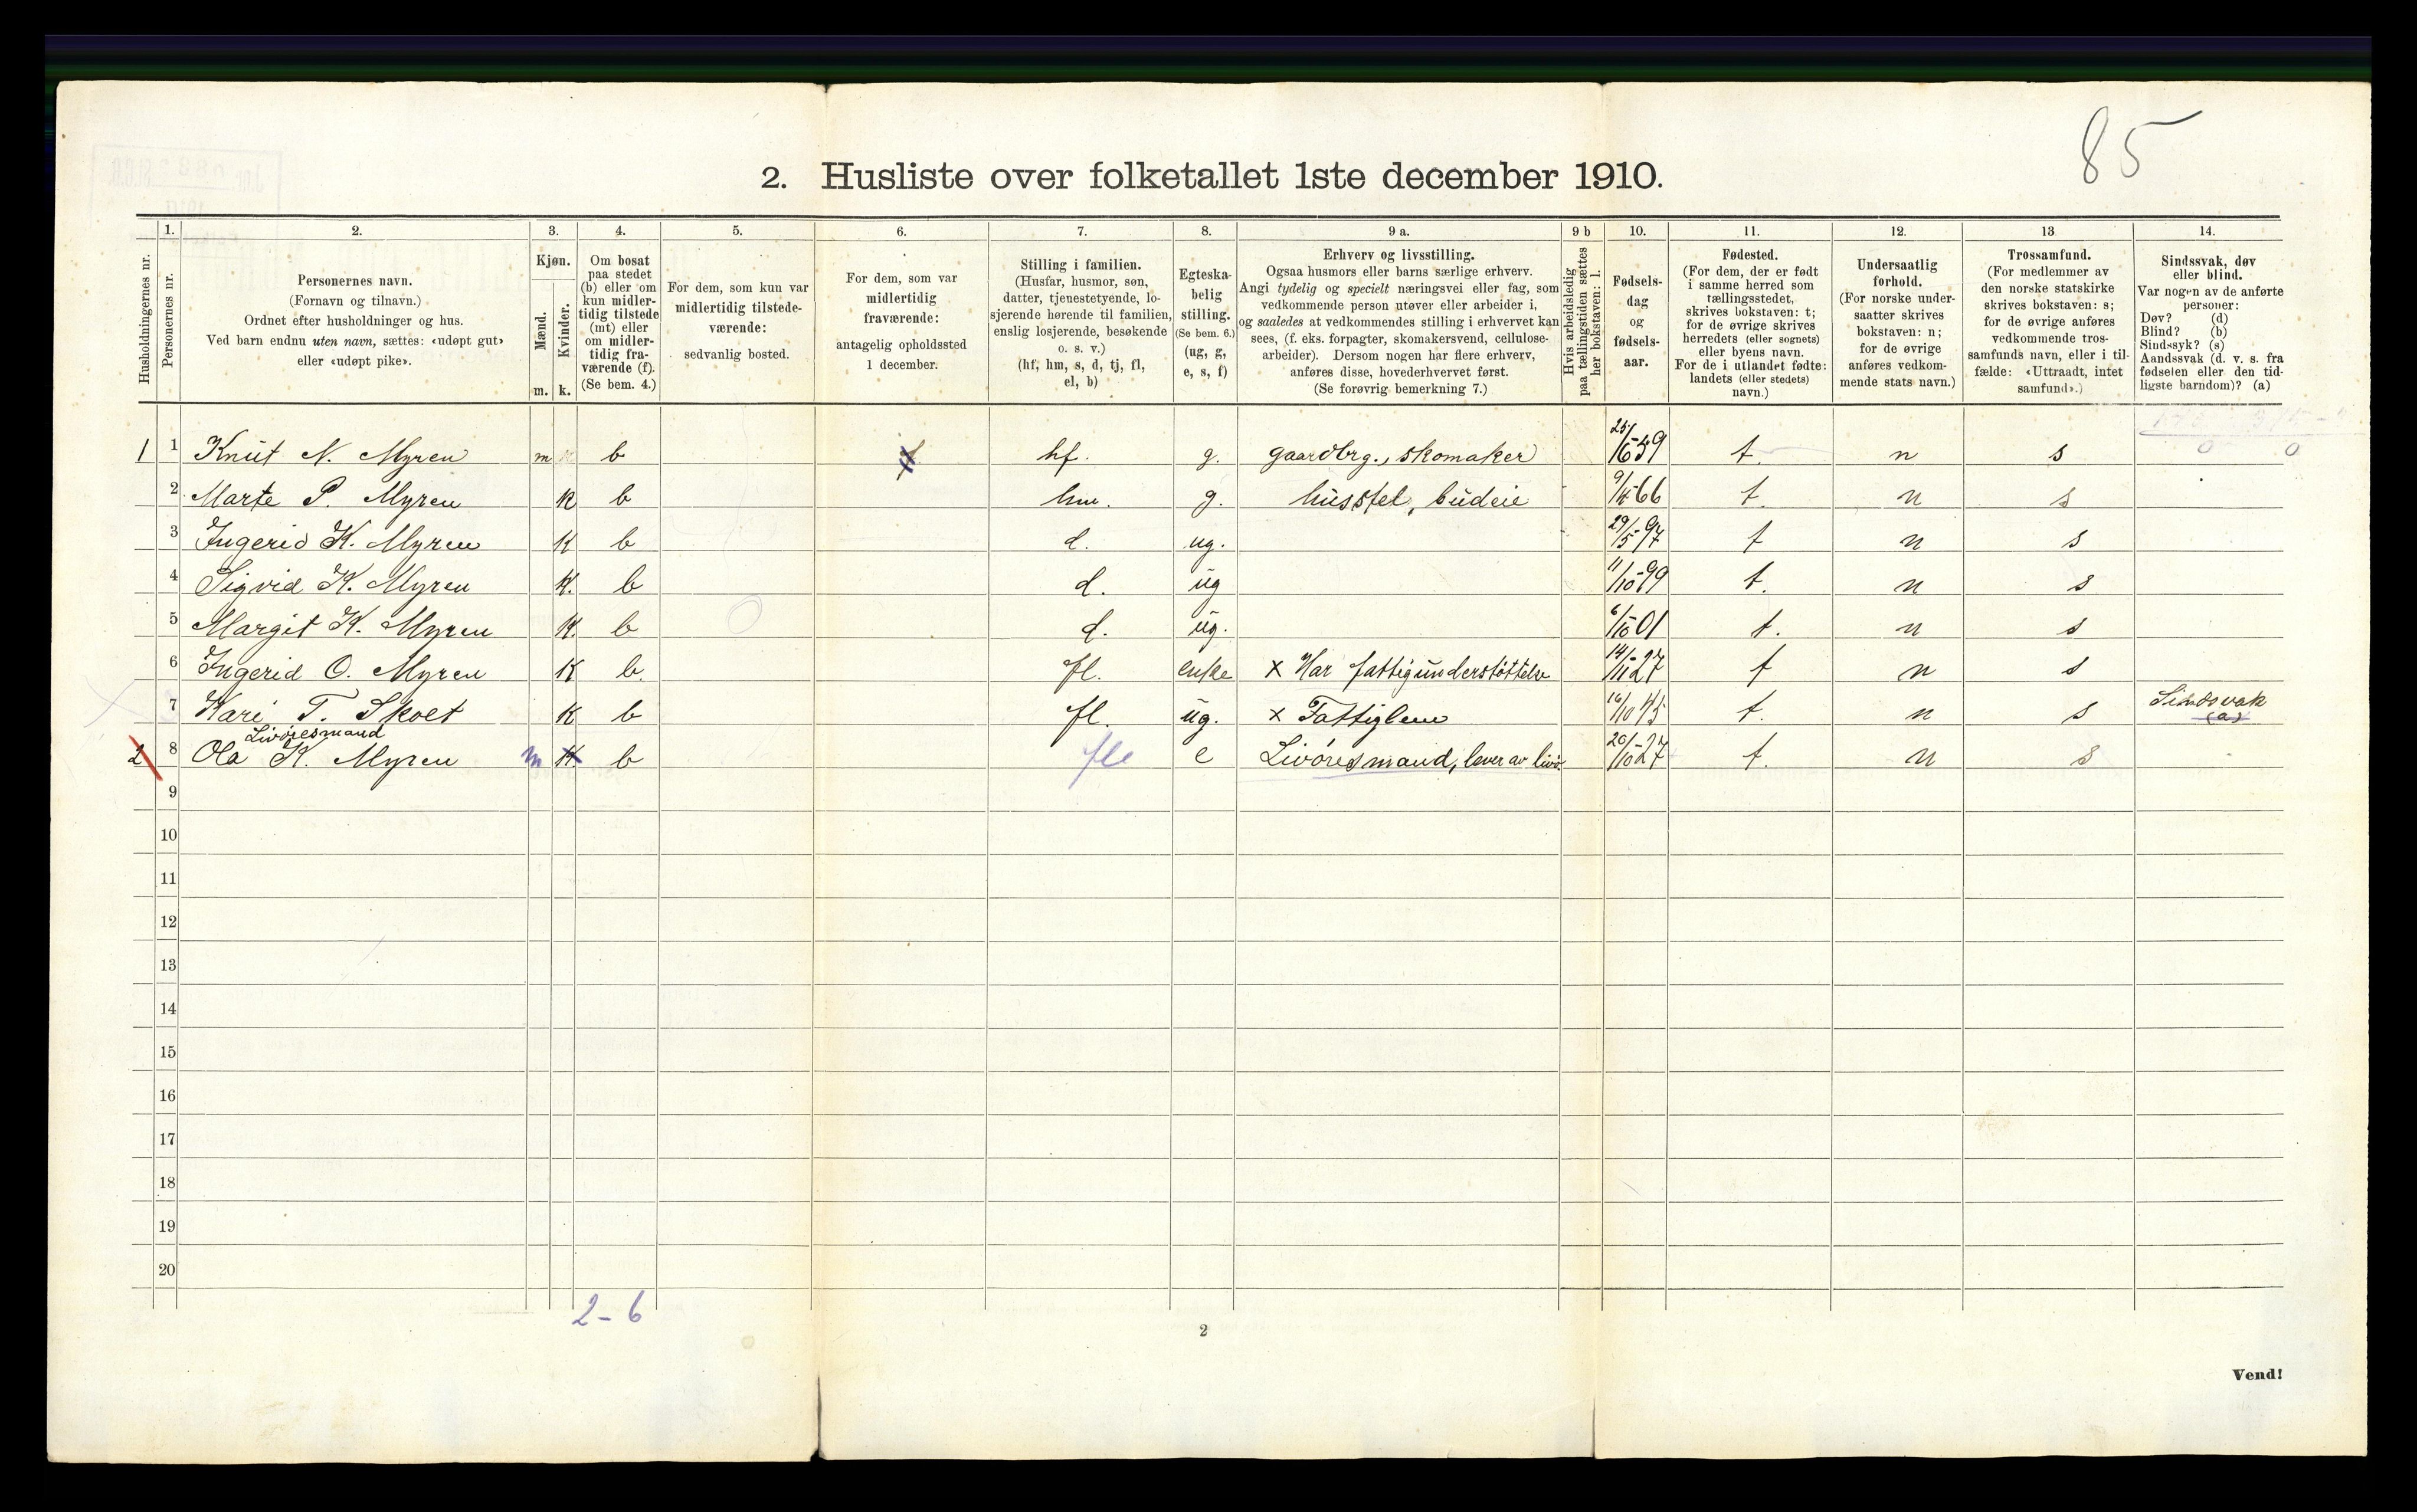 85
2. Husliste over folketallet 1ste december 1910.
Husholdningernes nr.
1.
Personernes nr.
2.
Personernes navn.
(Fornavn og tilnavn.)
Ordnet efter husholdninger og hus.
Ved barn endnu uten navn, sættes: «udøpt gut»
eller «udøpt pike».
3.
Kjøn.
Mænd.
Kvinder.
m. k.
4.
Om bosat
paa stedet
(b) eller om
kun midler-
tidig tilstede
(mt) eller
om midler-
tidig fra-
værende (f).
(Se bem. 4.)
5.
For dem, som kun var
midlertidig tilstede-
værende:
sedvanlig bosted.
6.
For dem, som var
midlertidig
fraværende:
antagelig opholdssted
1 december.
7.
Stilling i familien.
(Husfar, husmor, søn,
datter, tjenestetyende, lo-
sjerende hørende til familien,
enslig losjerende, besøkende
o. s. v.)
(hf, hm, s, d, tj, fl,
el, b)
8.
Egteska-
belig
stilling.
(Se bem. 6.)
(ug, g,
e, s, f)
9 a.
Erhverv og livsstilling.
Ogsaa husmors eller barns særlige erhverv.
Angi tydelig og specielt næringsvei eller fag, som
vedkommende person utøver eller arbeider i,
og saaledes at vedkommendes stilling i erhvervet kan
sees, (f. eks. forpagter, skomakersvend, cellulose-
arbeider). Dersom nogen har flere erhverv,
anføres disse, hovederhvervet først.
(Se forøvrig bemerkning 7.)
9 b
Hvis arbeidsledig
paa tællingstiden sættes
her bokstaven: l.
10.
Fødsels-
dag
og
fødsels-
aar.
11.
Fødested.
(For dem, der er født
i samme herred som
tællingsstedet,
skrives bokstaven: t;
for de øvrige skrives
herredets (eller sognets)
eller byens navn.
For de i utlandet fødte:
landets (eller stedets)
navn.)
12.
Undersaatlig
forhold.
(For norske under-
saatter skrives
bokstaven: n;
for de øvrige
anføres vedkom-
mende stats navn.)
13
Trossamfund.
(For medlemmer av
den norske statskirke
skrives bokstaven: s;
for de øvrige anføres
vedkommende tros-
samfunds navn, eller i til-
fælde: «Uttraadt, intet
samfund».)
14.
Sindssvak, døv
eller blind.
Var nogen av de anførte
personer:
Døv? (d)
Blind? (b)
Sindssyk? (s)
Aandssvak (d. v. s. fra
fødselen eller den tid-
ligste barndom)? (a)
1 1 Knut N. Myren m b hf. g. gaardbrg., skomaker t. n s 0 0
2 Marte P. Myren k b hm. g. husstel, budeie t. n s
3 Ingerid K. Myren k b d. ug. 29/5-97 t n s
4 Sigvid K. Myren k. b d. ug 11/10-99 t. n s
5 Margit K. Myren k. b d. ug. 6/10 01 t. n s
6 Ingerid O. Myren k b. fl. enke x Har fattigunderstøttelse 14/11-27 t n s
7 Kari T. Skoet k b fl. ug. x Fattiglem 16/10 45 t. n s Sindsvak (a)
Livøresmand
2 8 Ola K. Myren m b fl e Livøresmand, lever av livø. 20/10-27 t. n s
9
10
11
12
13
14
15
16
17
18
19
20
2 - 6
2
Vend!